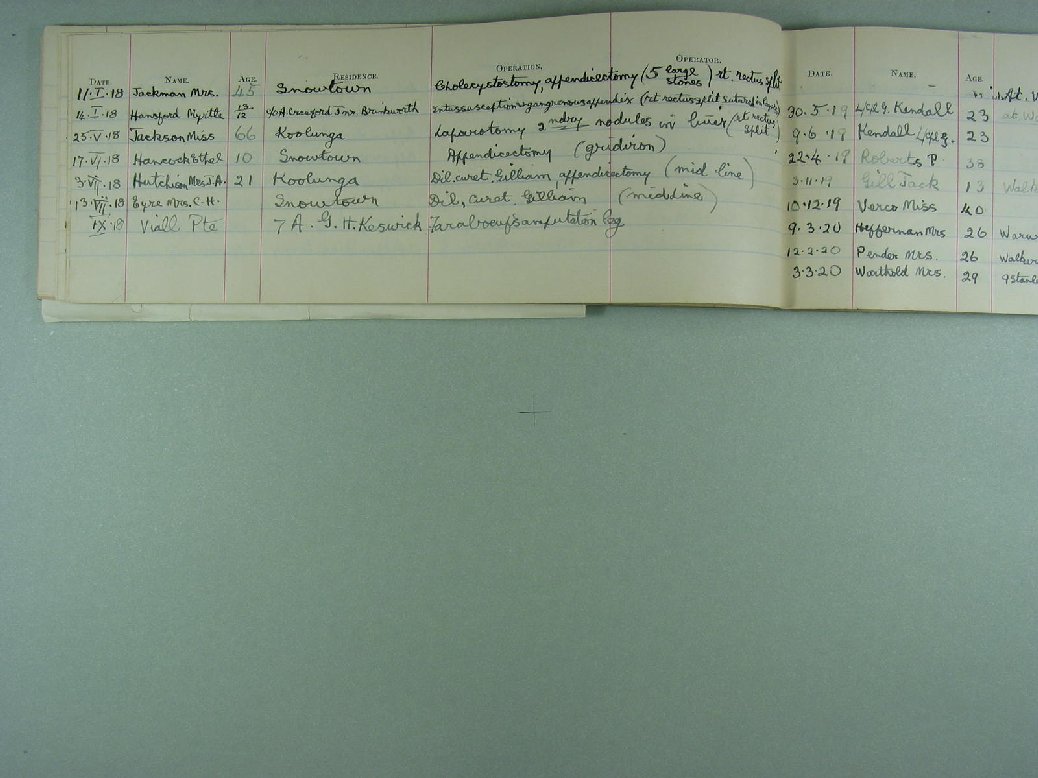 DATE NAME. AGE. RESIDENCE. OPERATION. OPERATOR.
11.I.18 Jackman Mrs. 45 Snowtown Cholecystostomy, appendicectomy (5 large stones) rt. rectus split
14.I.18 Hansford Myrtle 13/12 Crawford Inn Brinkworth Intussusception & gangrenous appendix (rt rectus split sutured in layers)
25.V.18 Jackson Miss 66 Koolunga Laparotomy 2ndry nodules in liver (rt rectus split)
17.VI.18 Hancock Ethel 10 Snowtown Appendicectomy (gridiron)
3.VII.18 Hutchison Mrs J.A. 21 Koolunga Dil. curet. Gilliam, appendicectomy (mid line)
13.VII.18 Eyre Mrs. C.H. Snowtown Dil, curet. Gilliam (midline)
IX.18 Viall Pte 7 A. G. H. Keswick Faraboeuf's amputation leg
DATE. NAME. AGE
30.5.19 L/Cpl G. Kendall 23
9.6.19 Kendall L/Cpl G. 23
22.4.19 Roberts P. 38
3.11.19 Gill Jack 13 Walk
10.12.19 Verco Miss 40
9.3.20 Heffernan Mrs 26
12.2.20 Pender Mrs. 26 Walker
3.3.20 Warthold Mrs. 29